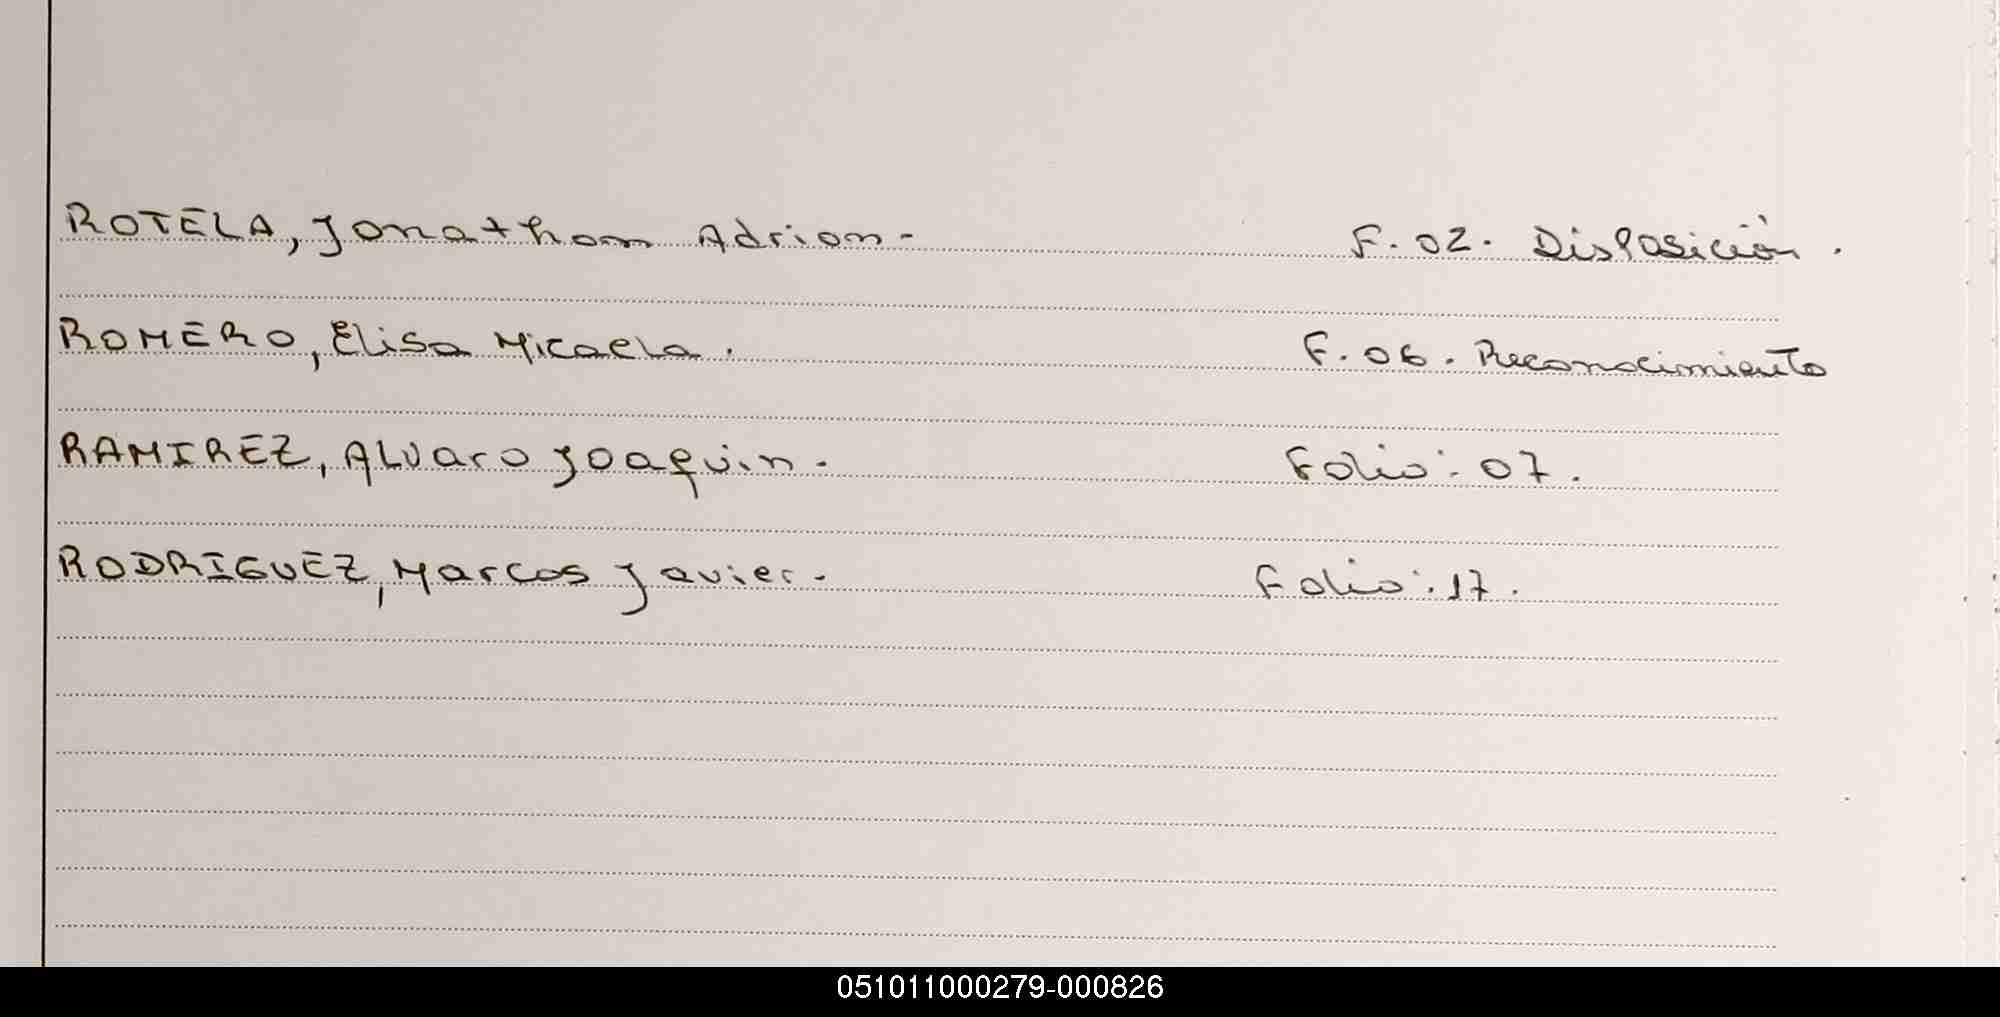 ROTELA, Jonathan Adrian - F. 02. Disposición.
ROMERO, Elisa Micaela. F. 06. Reconocimiento
RAMIREZ, Alvaro Joaquin. Folio: 07.
RODRIGUEZ, Marcos Javier. Folio: 17.
051011000279-000826